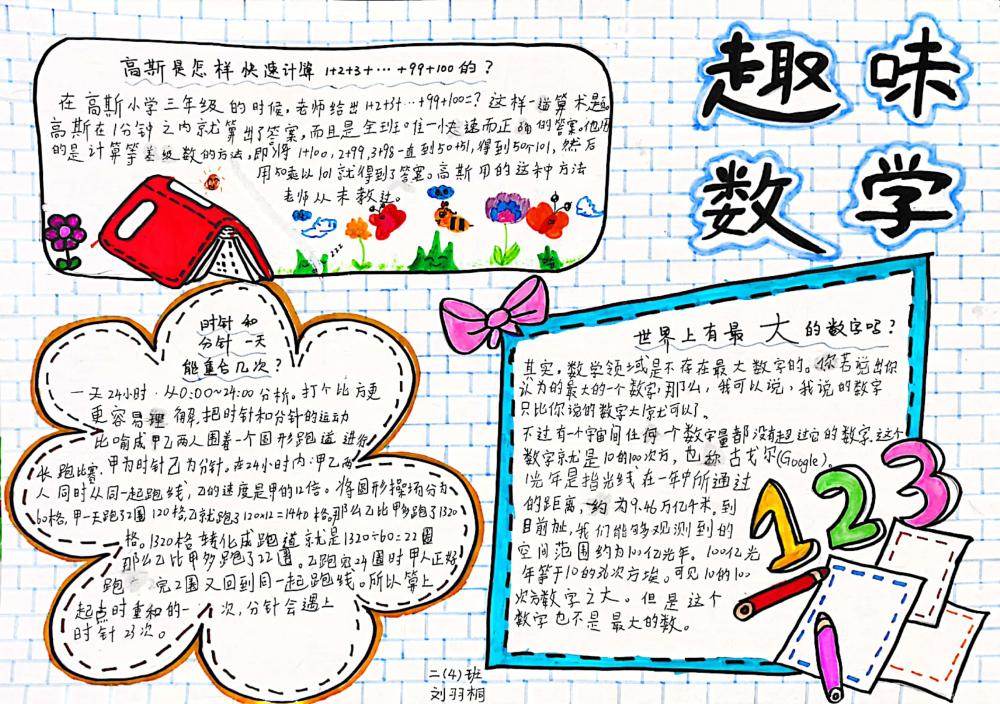 趣味
数学
高斯是怎样快速计算1+2+3+…+99+100的？
在高斯小学三年级的时候，老师给出1+2+3+…+99+100=？这样一道算术题。
高斯在1分钟之内就算出了答案，而且是全班唯一快速而正确的答案。他用
的是计算等差级数的方法，即将1+100，2+99，3+98一直到50+51，得到50个101，然后
用50乘以101就得到了答案。高斯用的这种方法
老师从未教过。
时针和
分针一天
能重合几次？
一天24小时，从0:00~24:00分析。打个比方更
更容易理解，把时针和分针的运动
比喻成甲乙两人围着一个圆形跑道进行
长跑比赛，甲为时针乙为分针。在24小时内：甲乙两
人同时从同一起跑线，乙的速度是甲的12倍。将圆形操场分为
60格，甲一天跑了2圈120格，乙就跑了120×12=1440格。那么乙比甲多跑了1320
格。1320格转化成跑道就是1320÷60=22圈
那么乙比甲多跑了22圈。乙跑完24圈时甲人正好
跑完2圈又回到同一起跑线。所以算上
起点时重和的一次，分针会遇上
时针23次。
世界上有最大的数字吗？
其实，数学领域是不存在最大数字的。你若说出你
认为的最大的一个数字，那么，我可以说，我说的数字
只比你说的数字大1就可以了。
不过有一个宇宙间任何一个数字量都没有超过它的数字，这个
数字就是10的100次方，也称古戈尔(Google)。
1光年是指光线在一年中所通过
的距离，约为9.46万亿千米，到
目前址，我们能够观测到的
空间范围约为101亿光年。100亿光
年等于10的26次方埃。可见10的100
次方数字之大。但是这个
数字也不是最大的数。
1 2 3
二(4)班
刘羽桐